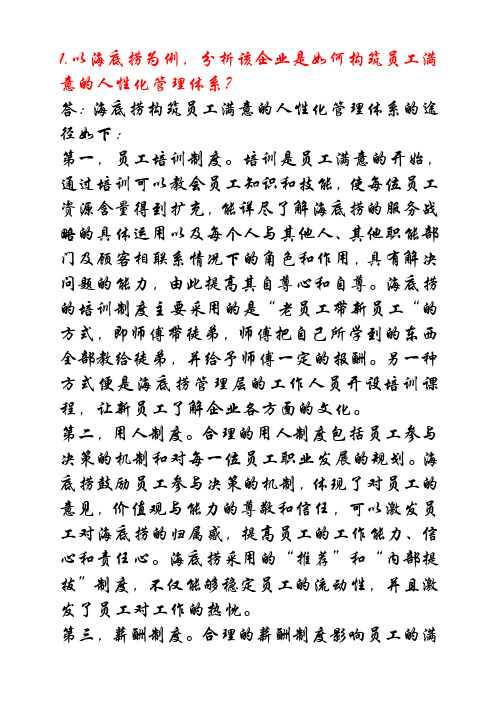 1.以海底捞为例，分析该企业是如何构筑员工满
意的人性化管理体系？
答：海底捞构筑员工满意的人性化管理体系的途
径如下：
第一，员工培训制度。培训是员工满意的开始，
通过培训可以教会员工知识和技能，使每位员工
资源含量得到扩充，能详尽了解海底捞的服务战
略的具体运用以及每个人与其他人、其他职能部
门及顾客相联系情况下的角色和作用，具有解决
问题的能力，由此提高其自尊心和自尊。海底捞
的培训制度主要采用的是“老员工带新员工“的
方式，即师傅带徒弟，师傅把自己所学到的东西
全部教给徒弟，并给予师傅一定的报酬。另一种
方式便是海底捞管理层的工作人员开设培训课
程，让新员工了解企业各方面的文化。
第二，用人制度。合理的用人制度包括员工参与
决策的机制和对每一位员工职业发展的规划。海
底捞鼓励员工参与决策的机制，体现了对员工的
意见，价值观与能力的尊敬和信任，可以激发员
工对海底捞的归属感，提高员工的工作能力、信
心和责任心。海底捞采用的“推荐”和“内部提
拔”制度，不仅能够稳定员工的流动性，并且激
发了员工对工作的热忱。
第三，薪酬制度。合理的薪酬制度影响员工的满